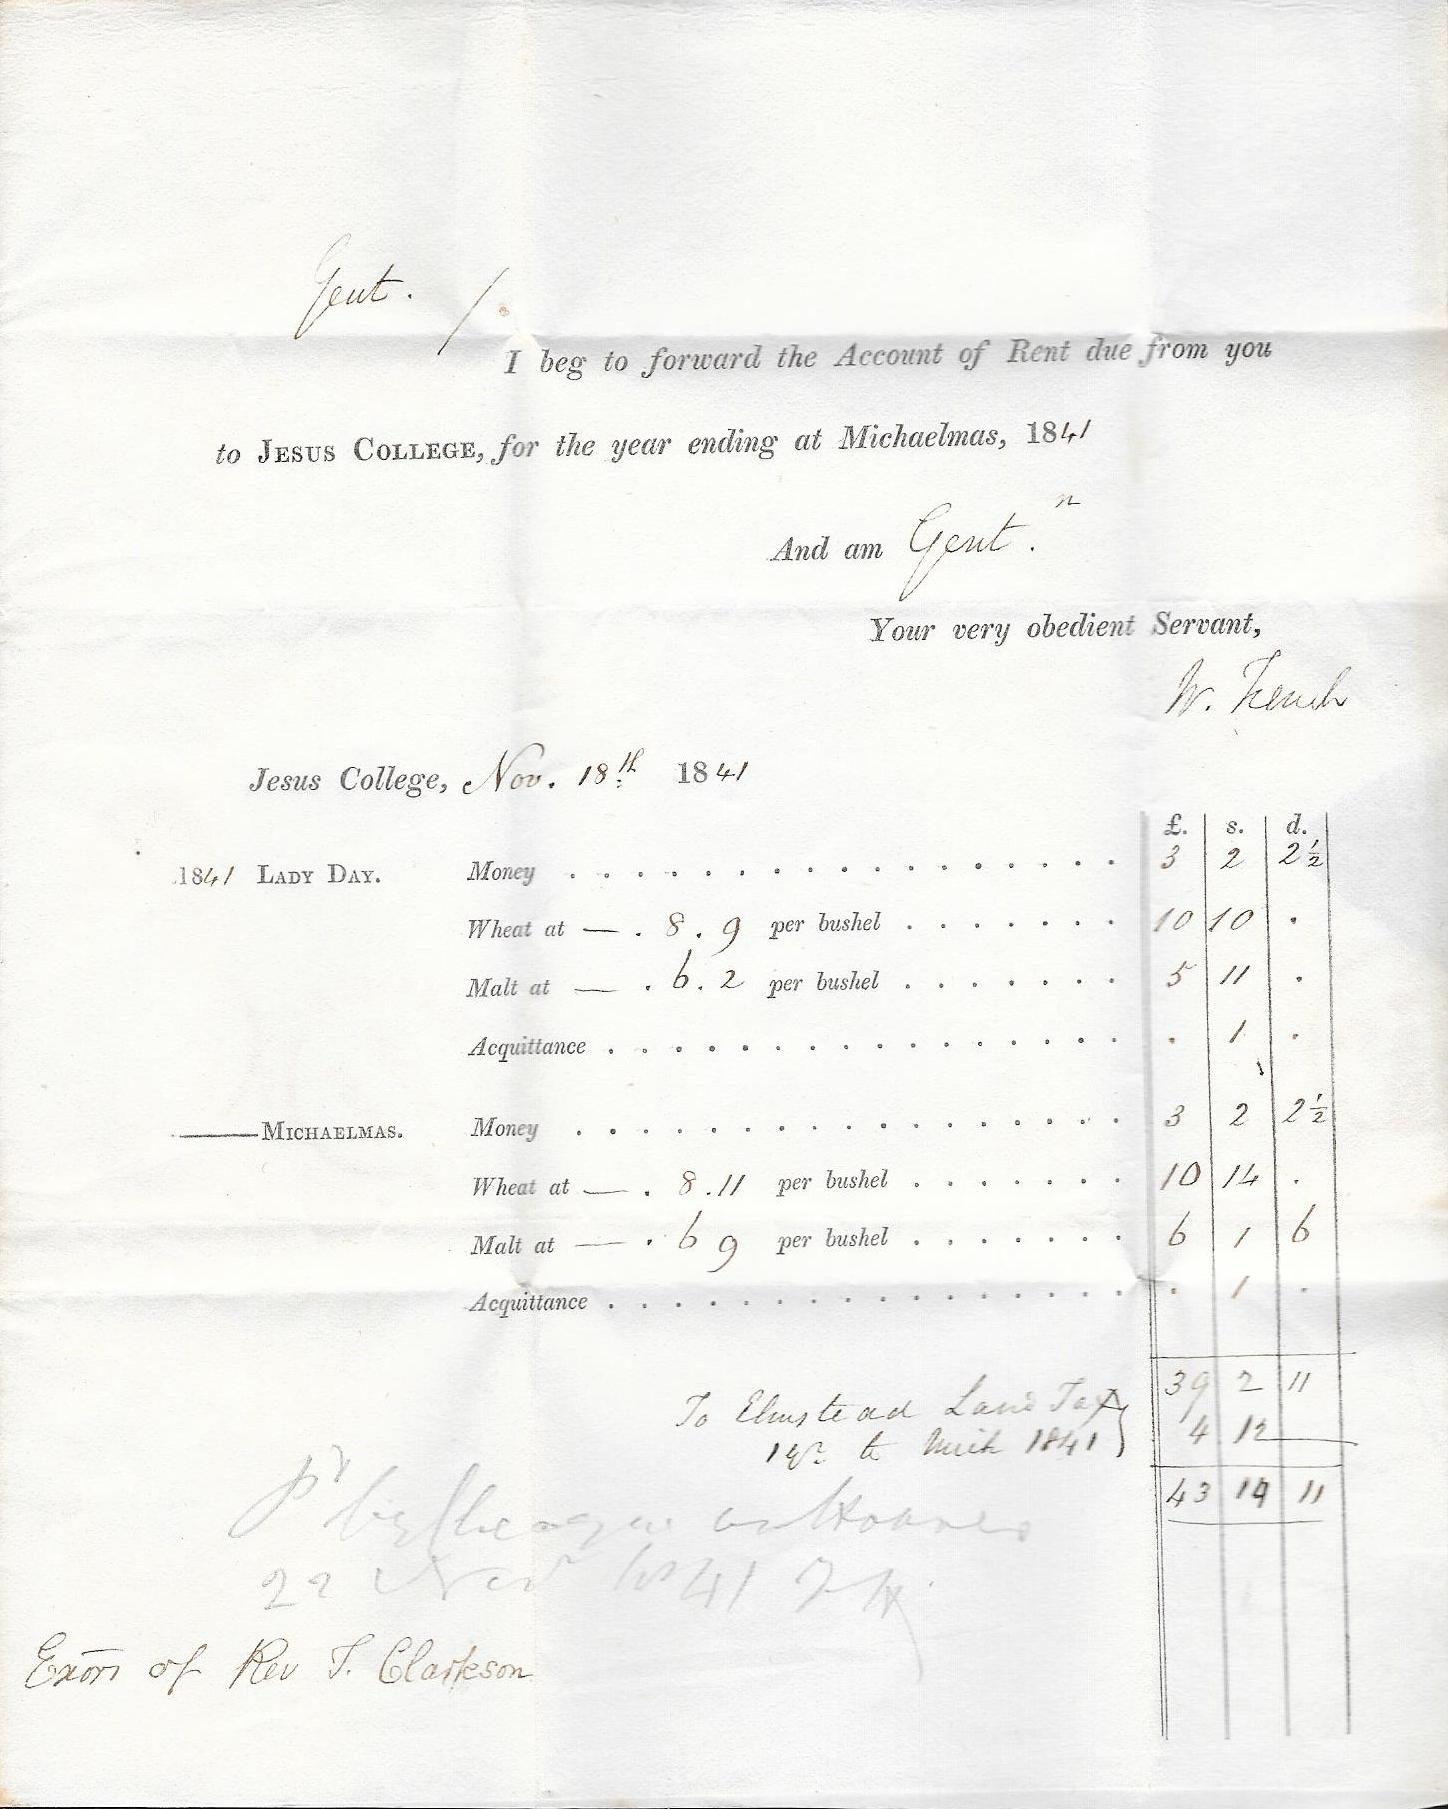 Gent.
I beg to forward the Account of Rent due from you
to JESUS COLLEGE, for the year ending at Michaelmas, 1841
And am Gent.n
Your very obedient Servant,
W. French
Jesus College, Nov. 18th 1841
£. s. d.
1841 LADY DAY. Money . . . . . . . . . . . . . . . . . 3 2 2½
Wheat at — . 8 . 9 per bushel . . . . . . . 10 10 .
Malt at — . 6 . 2 per bushel . . . . . . . 5 11 .
Acquittance . . . . . . . . . . . . . . . . . 1 .
—— MICHAELMAS. Money . . . . . . . . . . . . . . . . . 3 2 2½
Wheat at — . 8 . 11 per bushel . . . . . . . 10 14 .
Malt at — . 6 9 per bushel . . . . . . . 6 1 6
Acquittance . . . . . . . . . . . . . . . . . 1 .
39 2 11
To Elmstead Land Tax
1 yr to Mich 1841 } 4 12 —
43 14 11
22 Nov 1841
Exors of Rev T. Clarkson